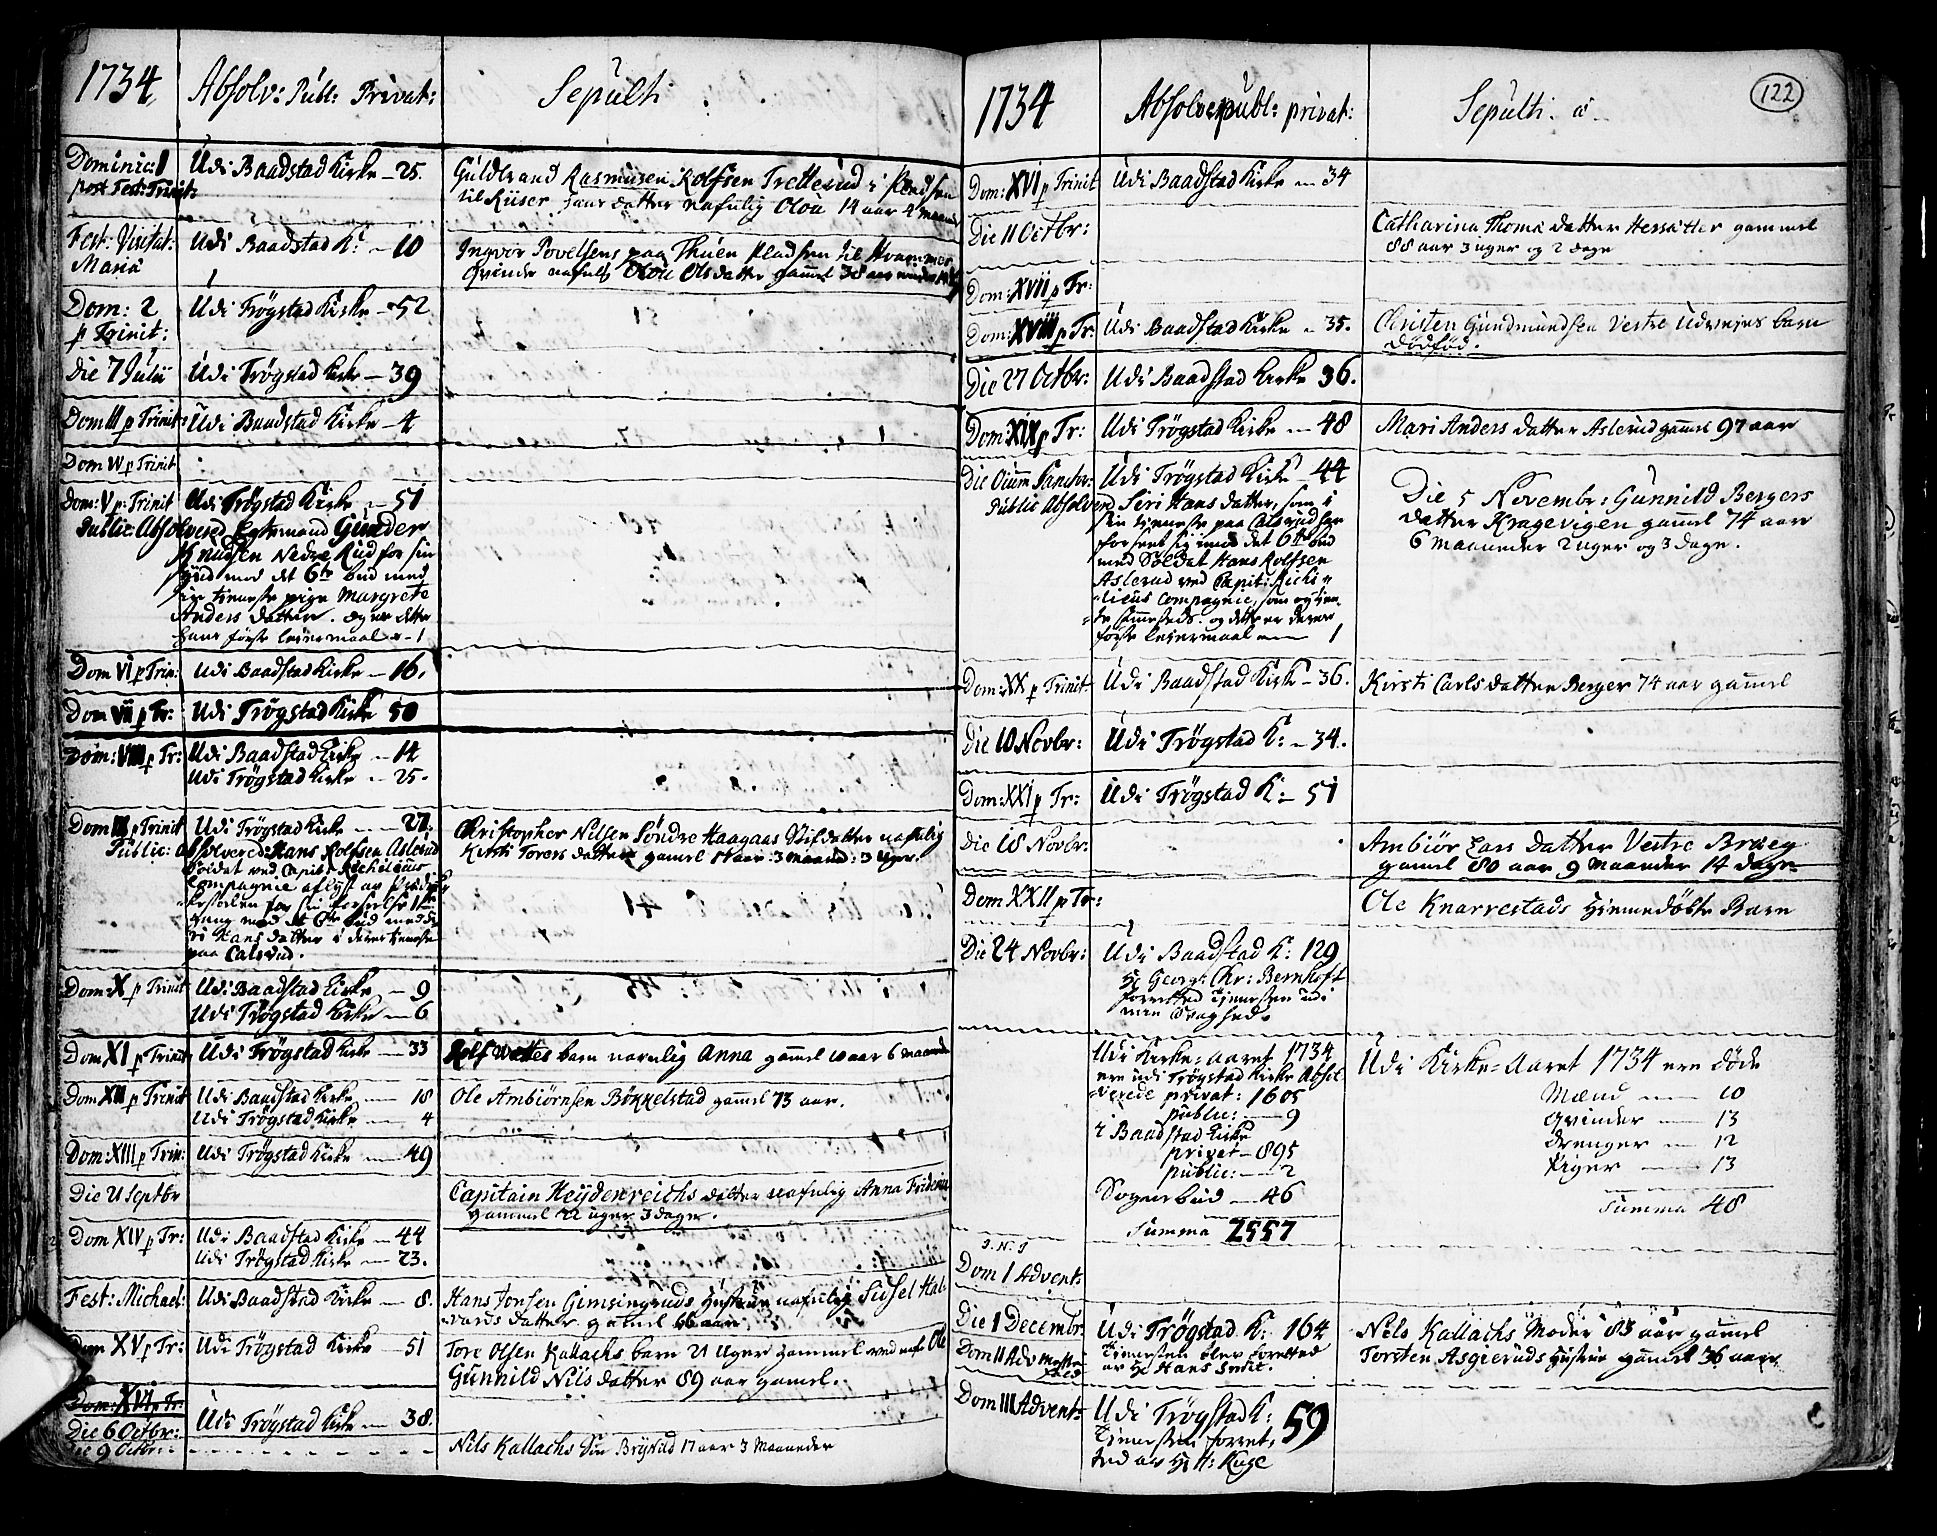 1734
Absolv: Publ: Privat:
Sepulti
Dominic: I
post Fest: Trinit:
Udi Baadstad Kirke - 25.
Guldbrand Rasmusen Rolfsen Tretterud i Pladsen
til Kiiser hans datter nafnlig Oloü 14 aar 4 maaneder
Fest: Visitat:
Mariä
Udi Baadstad K: - 10
Ingvor Povelsens paa Thuen Pladsen til
Qvinde nafnlig Oloü Olsdatter gaml 38 aar
Dom: 2
p Trinit:
Udi Trøgstad Kirke - 52
Die 7 Julii
Udi Trøgstad Kirke - 39
Dom III p Trinit:
Udi Baadstad Kirke - 4
Dom IV p Trinit
Dom: V p: Trinit
Udi Trøgstad Kirke - 51
Public: Absolvered Egtemand Gunder
Knudsen Nedre Rud for sin
Synd mod det 6te bud med
sin tieneste pige Margrete
Anders datter. og er dette
hans første leiermaal - 1
Dom VI p Trin:
Udi Baadstad Kirke - 16.
Dom VII p Tr:
Udi Trøgstad Kirke 50
Dom: VIII p Tr:
Udi Baadstad Kirke - 14
Udi Trøgstad Kirke - 25.
Dom IX p Trinit
Udi Trøgstad Kirke - 27.
Public: absolvered: Hans Rolfsen Aslerud
Soldat ved Capit: Richelieus
Compagnie aflyst av Prædike
stolen for sin forseelse 1te
gang mod det 6te bud med Si
ri Hans datter i deres tieneste
paa Calsrud.
Christopher Nilsen Søndre Haagaas Stifdatter nafnlig
Kirsti Tores datter gamel 11 aar 3 Maaned: 3 Uger.
Dom: X p Trinit
Udi Baadstad Kirke - 9
Udi Trøgstad Kirke - 6
Dom XI p Trinit
Udi Trøgstad Kirke - 33
Rolf barn navnlig Anna gamel 10 aar 6 maaneder
Dom XII p Trinit
Udi Baadstad Kirke - 18
Udi Trøgstad Kirke - 4
Ole Ambiørnsen Bøkkelstad gamel 73 aar.
Dom: XIII p Trin:
Udi Trøgstad Kirke - 49
Die 21 Septbr
Capitain Heydenreichs datter nafnlig Anna Frideric
gammel 22 uger 3 dager.
Dom XIV p Tr:
Udi Baadstad Kirke - 44
Udi Trøgstad Kirke - 23.
Fest: Michael:
Udi Baadstad Kirke - 8.
Hans Jonsen Gimsingruds Hustrue nafnlig Sidsel Hal
vords datter gamel 66 aar
Dom XV p Tr:
Udi Trøgstad Kirke - 51
Tore Olsen Kallachs barn 21 Uger gammel ved nafn Ole
Gunnild Nils datter 89 aar gamel.
Dom: XVI p Tr:
Die 6 Octbr:
Udi Trøgstad Kirke - 38.
Die 9 Octbr:
Nils Kallachs Brynild 17 aar 3 Maaneder
122
1734
Absolv: publ: privat:
Sepulti
Dom: XVI p Trinit
Udi Baadstad Kirke - 34
Die 11 Octbr:
Catharina Thomæ datter Hessätter gammel
88 aar 3 uger og 2 dage
Dom: XVII p Tr:
Dom: XVIII p Tr:
Udi Baadstad Kirke - 35.
Christen Gundmundsen Vestre Udennes barn
dødfød.
Die 27 Octbr:
Udi Baadstad Kirke 36.
Dom: XIX p Tr:
Udi Trøgstad Kirke - 48
Mari Anders datter Aslerud gamel 97 aar
Die Oium Sanctor:
Udi Trøgstad Kirke - 44
Public Absolvered Siri Hans datter, som i
sin tieneste paa Calsrud har
forseet sig imod det 6te bud
med Soldat Hans Rolfsen
Aslerud ved Capit: Riche
lieus Compagnie, som og tien
te sammesteds. og dette er deres
første leiermaal - 1
Die 5 Novembr: Gunnild Bergers
datter Kragevigen gamel 74 aar
6 maaneder 2 uger og 3 dage.
Dom: XX p Trinit
Udi Baadstad Kirke - 36.
Kirsti Carls datter Berger 74 aar gamel
Die 10 Novbr:
Udi Trøgstad K: - 34.
Dom: XXI p Tr:
Udi Trøgstad K: - 51
Die 18 Novbr:
Ambiør Lars datter Vestre Bræg
gamel 80 aar 9 Maaneder 14 dage
Dom XXII p Tr:
Ole Knarrestads Hiemmedøbte Barn
Die 24 Novbr:
Udi Baadstad K: 129
Hr Georg: Chr: Bernhoft
forretted Tienesten udi
min Svaghed.
Udi Kirke-Aaret 1734
ere udi Trøgstad Kirke Absol
verede privat: 1605
public: - 9
i Baadstad Kirke
privat - 895
public: - 2
Sognebud - 46
Summa 2557
Udi Kirke-Aaret 1734 ere døde
Mænd - 10
Qvinder - 13
Drenger - 12
Piger - 13
Summa 48
J. N. J
Dom 1 Advent:
Die 1 Decembr:
Udi Trøgstad K: 164
Tienesten blev forretted
av Hr Hans Smit.
Dom II Adv
Nils Kallachs Moder 83 aar gamel
Torsten Asgieruds Hustrue gamel 36 aar
Dom III Advent:
Udi Trøgstad K: 59
Tienesten forret
ted av Hr H: Kuge